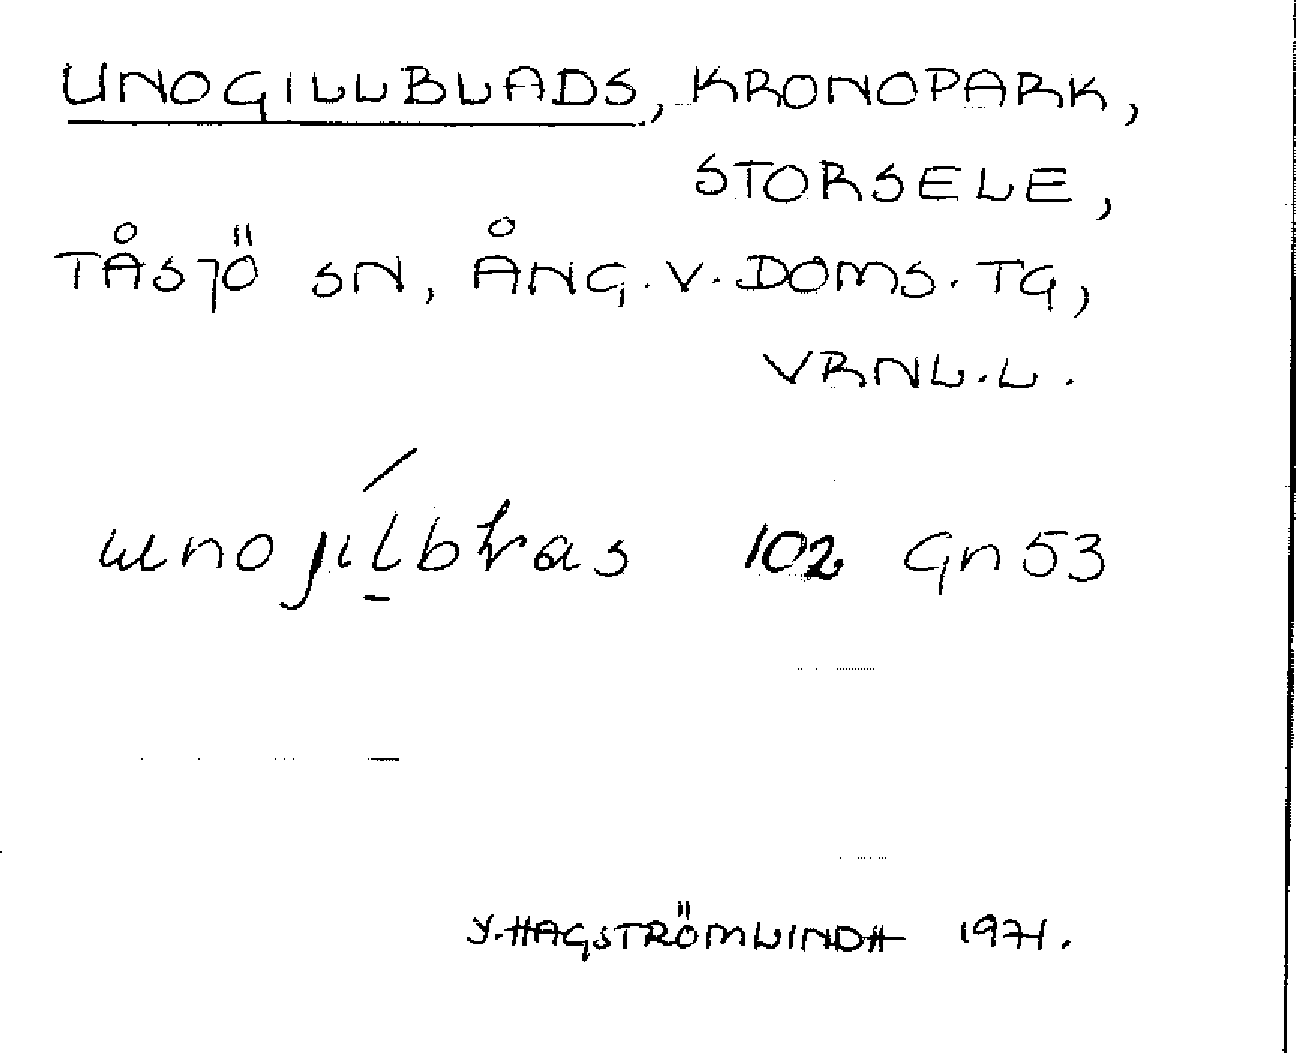 UNOGILLBLADS, KRONOPARK,
STORSELE,
TÅSJÖ SN, ÅNG. V. DOMS. TG,
VRNL. L.
102 Gn 53
Y. HAGSTRÖMLINDH 1971.